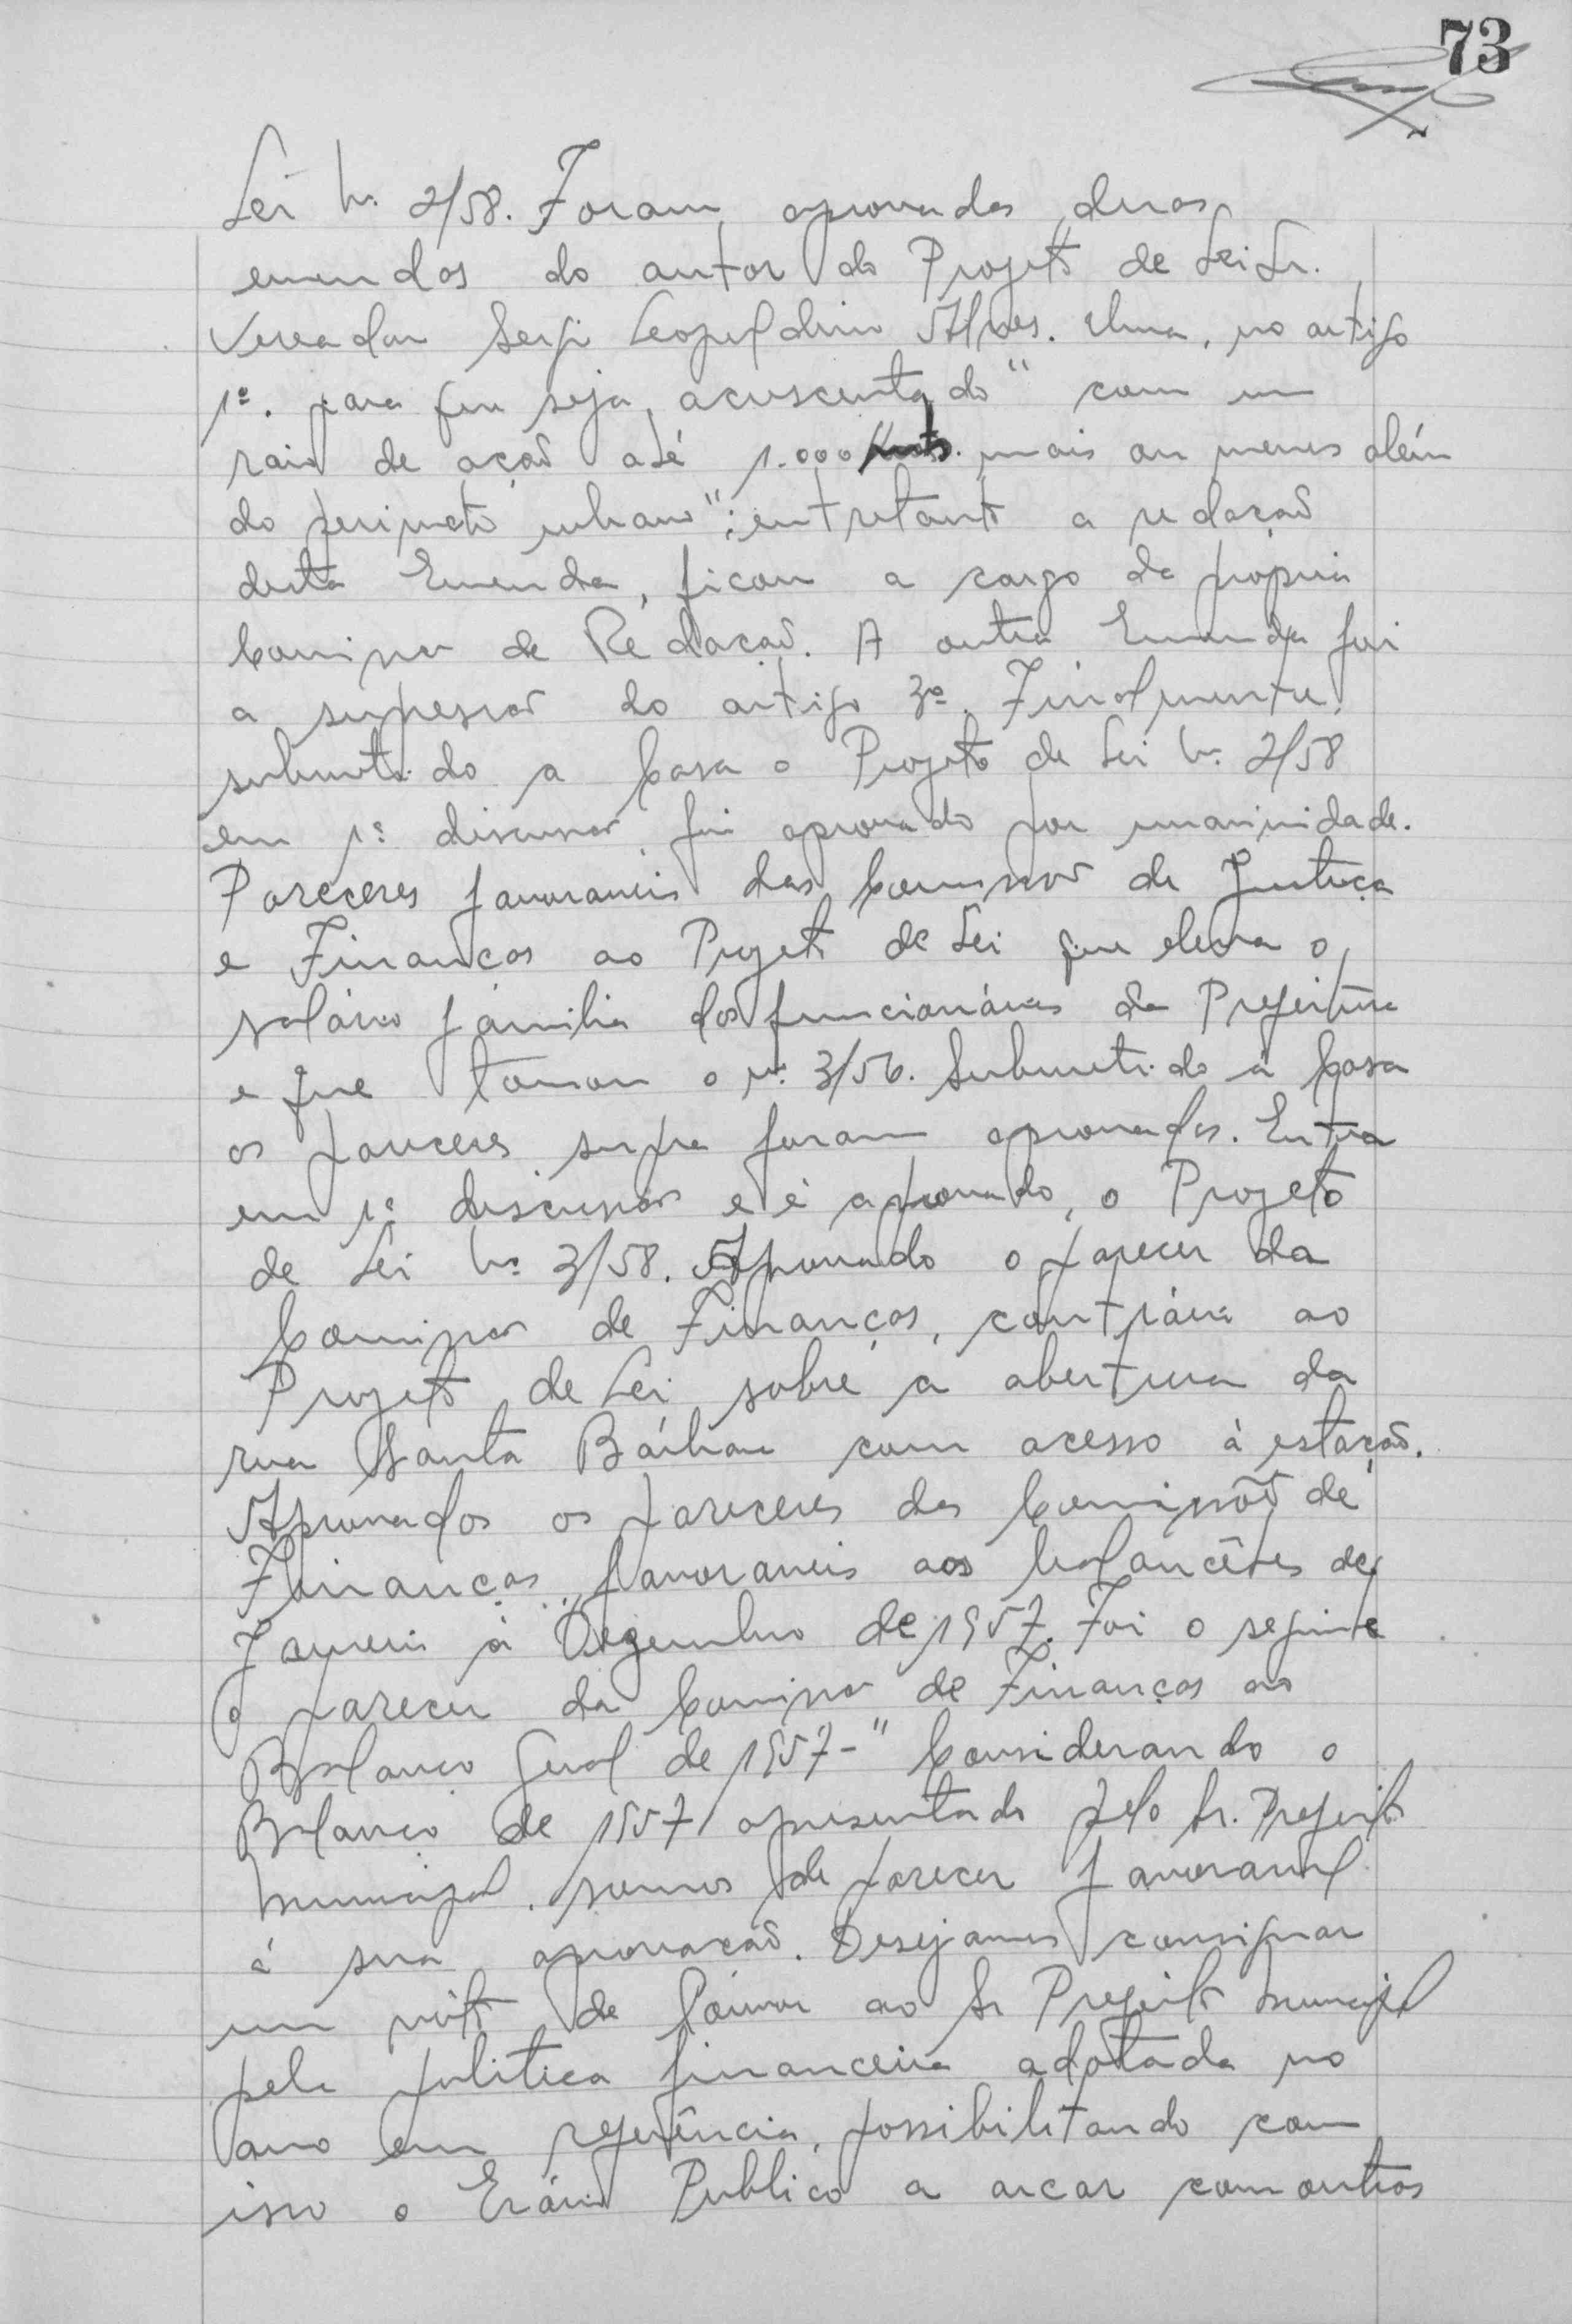 73
Lei Nº 2/58. Foram aprovadas duas
emendas do autor do Projeto de Lei Sr.
Vereador Sergi Leopoldino Alves. Uma, no artigo
1º. para que seja acrescentado "com um
raio de ação até 1.000 mts. mais ou menos além
do perimetro urbano"; entretanto a redação
desta Emenda, ficou a cargo da propria
Comissão de Redação. A outra Emenda foi
a supressão do artigo 3º. Finalmente,
submetido a Casa o Projeto de Lei Nº 2/58
em 1ª discussão, foi aprovado por unanimidade.
Pareceres favoraveis das Comissões de Justiça
e Finanças ao Projeto de Lei que eleva o
salário familia dos funcionários da Prefeitura
e que tomou o nº 3/56. Submetido á Casa
os pareceres supra foram aprovados. Entra
em 1ª discussão e é aprovado, o Projeto
de Lei Nº 3/58. Aprovado o parecer da
Comissão de Finanças, contrário ao
Projeto de Lei sobre a abertura da
rua Santa Bárbara com acesso à estação.
Aprovados os pareceres das Comissões de
Finanças, favoraveis aos balancêtes de
Janeiro á Dezembro de 1957. Foi o seguinte
o parecer da Comissão de Finanças ao
Balanço Geral de 1957 - "Considerando o
Balanço de 1957 apresentado pelo Sr. Prefeito
Municipal, somos de parecer favoravel
á sua aprovação. Desejamos consignar
um voto de louvor ao Sr Prefeito Municipal
pela politica financeira adotada no
ano em referência, possibilitando com
isso o Erário Publico a arcar com outras